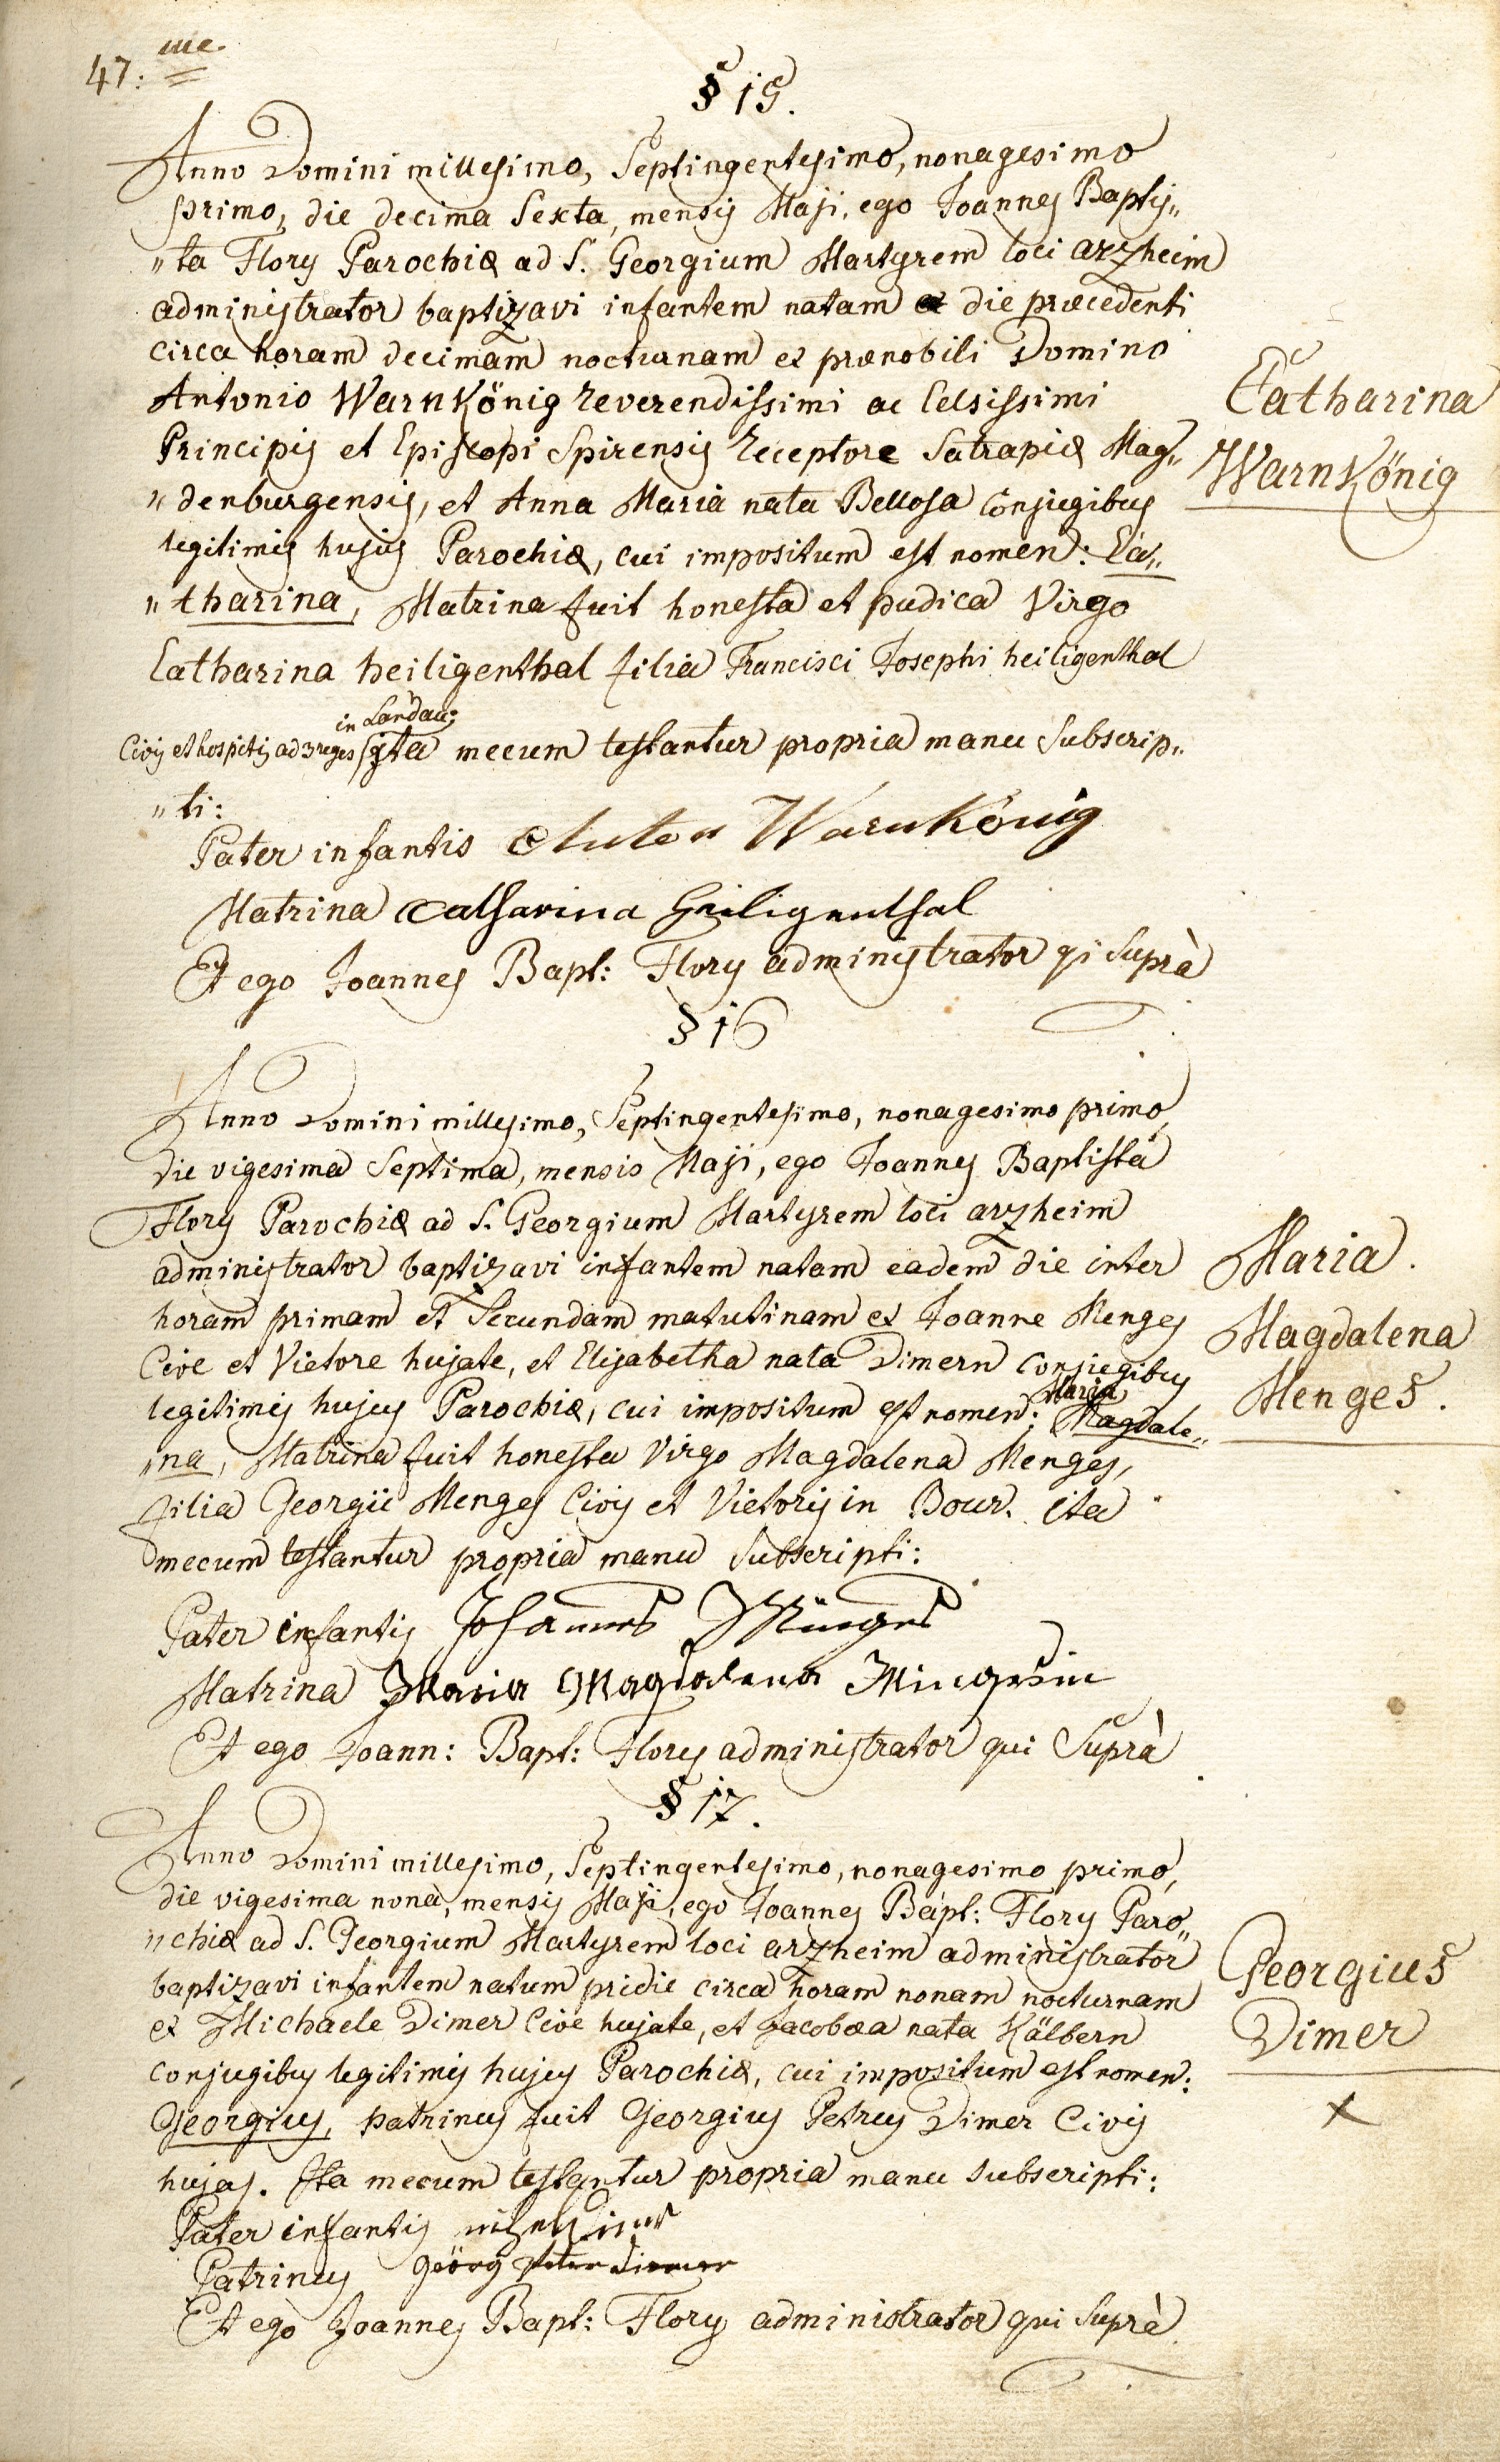 47: me.
§ 15.
Anno Domini millesimo, Septingentesimo, nonagesimo
primo, die decima Sexta, mensis Maji, ego Joannes Baptis„
„ta Flory Parochiæ ad S. Georgium Martyrem loci arzheim
administrator baptizavi infantem natam die præcedenti
circa horam decimam nocturnam ex prænobili Domino
Antonio Warnkönig reverendissimi ac Celsissimi
Principis et Episcopi Spirensis receptore Satrapiæ Mag„
„denburgensis, et Anna Maria nata Bellosa conjugibus
legitimis hujus Parochiæ, cui impositum est nomen: Ca„
„tharina, Matrina fuit honesta et pudica Virgo
Catharina heiligenthal filia Francisci Josephi heiligenthal
in Landau;
Civis et hospitis ad 3 reges ita mecum testantur propria manu Subscrip„
„ti:
Pater infantis Anton Warnkönig
Matrina Catharina Heiligenthal
Et ego Joannes Bapt: Flory administrator qi Suprà
Catharina
Warnkönig
§ 16
Anno Domini millesimo, Septingentesimo, nonagesimo primo,
die vigesima Septima, mensis Maji, ego Joannes Baptista
Flory Parochiæ ad S. Georgium Martyrem loci arzheim
administrator baptizavi infantem natam eadem die inter
horam primam et Secundam matutinam ex Joanne Menges
Cive et Vietore hujate, et Elisabetha nata Dimern conjugibus
legitimis hujus Parochiæ, cui impositum est nomen: Maria Magdale„
„na, Matrina fuit honesta Virgo Magdalena Menges,
filia Georgii Menges Civis et Vietoris in Bour. ita
mecum testantur propria manu Subscripti:
Pater infantis Johannes Münges
Matrina Maria Magdalena Mingesin
Et ego Joann: Bapt: Flory administrator qui Suprà
Maria.
Magdalena
Menges.
§ 17.
Anno Domini millesimo, Septingentesimo, nonagesimo primo,
die vigesima nona, mensis Maji, ego Joannes Bapt: Flory Paro„
„chiæ ad S. Georgium Martyrem loci arzheim administrator
baptizavi infantem natum pridie circa horam nonam nocturnam
ex Michaele Dimer Cive hujate, et Jacobæa nata Kälbern
conjugibus legitimis hujus Parochiæ, cui impositum est nomen:
Georgius, patrinus fuit Georgius Petrus Dimer Civis
hujas. Ita mecum testantur propria manu subscripti:
Pater infantis
Patrinus Geörg Peter Diemer
Et ego Joannes Bapt: Flory administrator qui Suprà
Georgius
Dimer
x